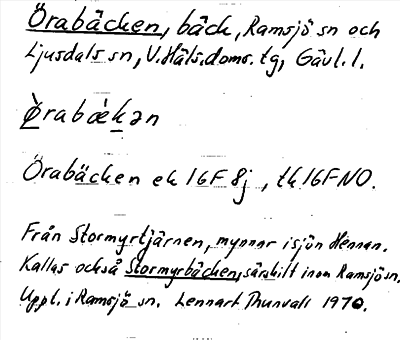 Örabäcken, bäck, Ramsjö sn och
Ljusdals sn, V. Häls. doms. tg, Gävl. l.
Ö̀rabæ̀kən
Örabäcken ek 16F 8j, tk 16F NO.
Från Stormyrtjärnen, mynnar i sjön Hennan.
Kallas också Stormyrbäcken, särskilt inom Ramsjö sn.
Uppl. i Ramsjö sn. Lennart Thunvall 1970.